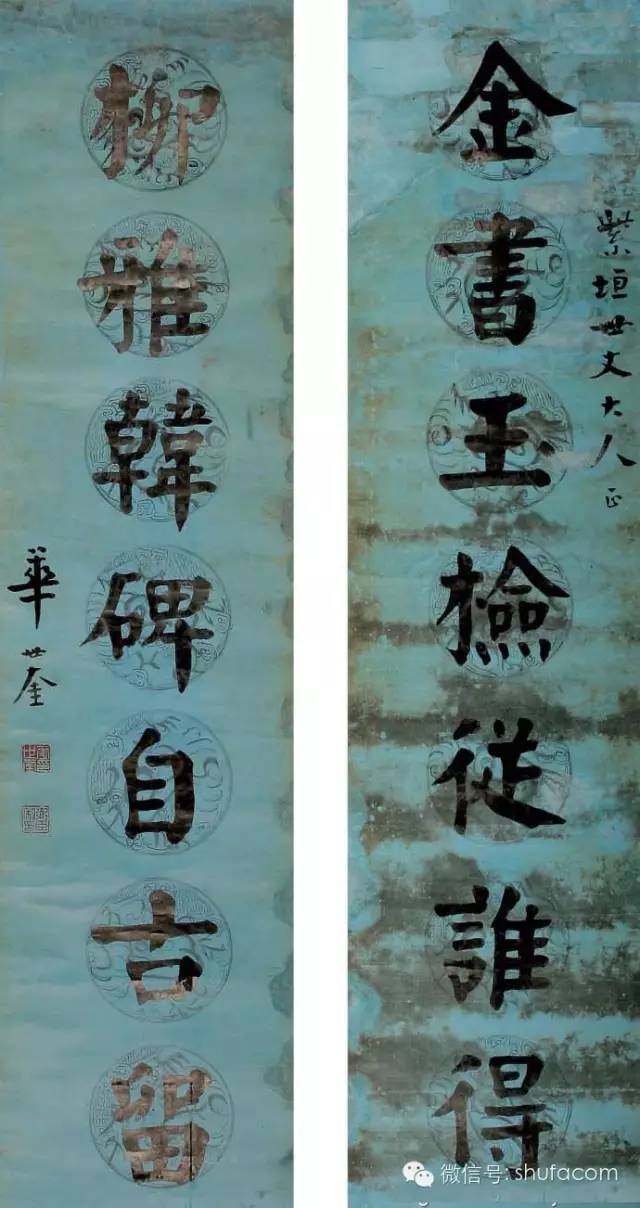 金書玉檢從誰得
紫垣世丈大人正
柳雅韓碑自古留
華世奎
微信号: shufacom